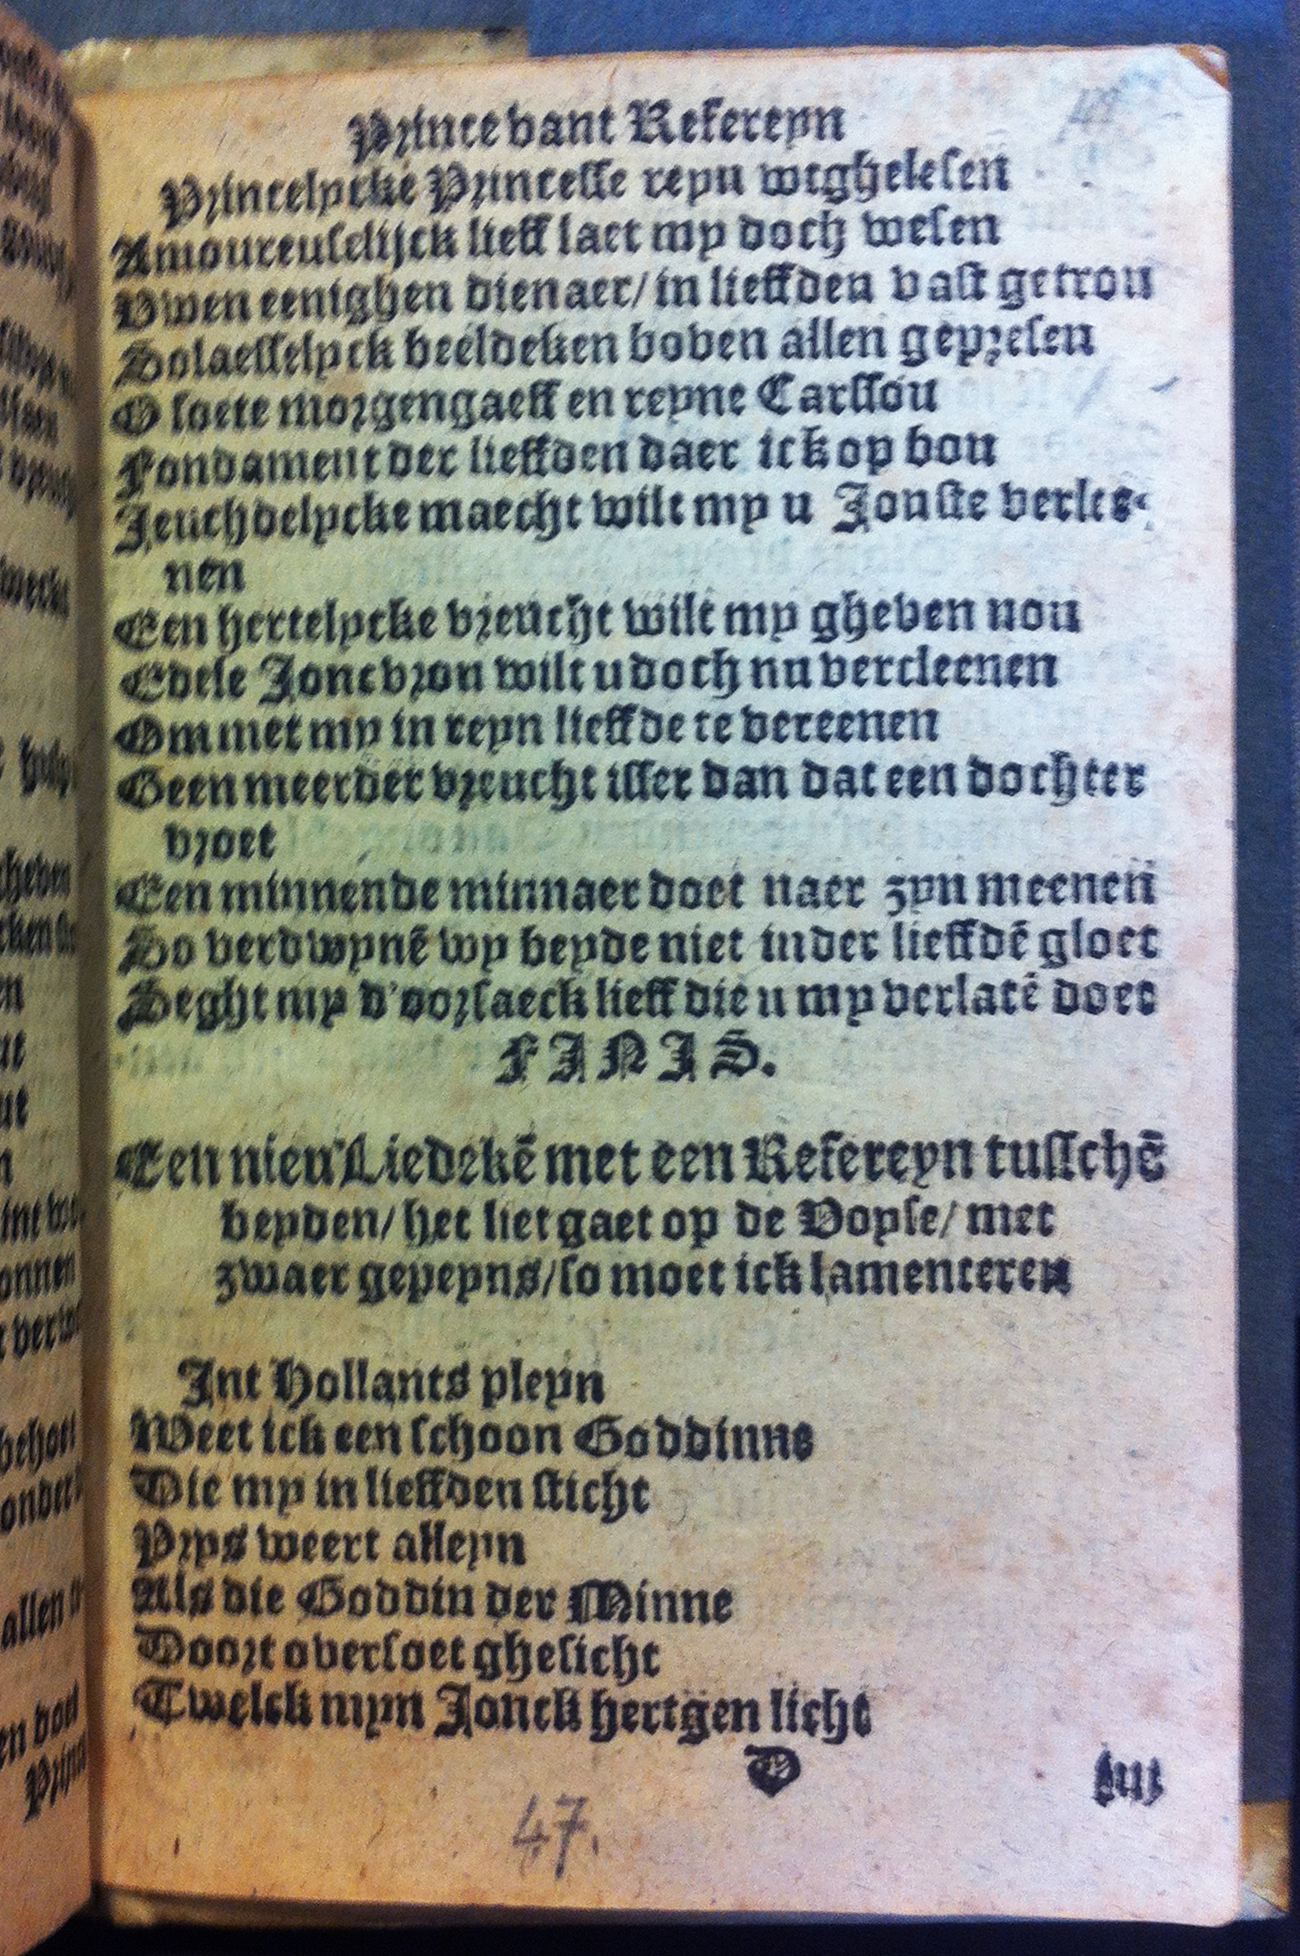 Prince vant Refereyn
Princelycke Princesse reyn wtghelesen
Amoureuselijck lieff laet my doch wesen
Vwen eenighen dienaer/ in lieffden vast getrou
Solaesselyck beeldeken boven allen gepresen
O soete morgengaeff en reyne Carssou
Fondament der lieffden daer ick op bou
Jeuchdelycke maecht wilt my u Jonste verlee-
nen
Een hertelycke vreucht wilt my gheven nou
Edele Joncvrou wilt u doch nu vercleenen
Om met my in reyn lieffde te vereenen
Geen meerder vreucht isser dan dat een dochter
vroet
Een minnende minnaer doet naer zyn meenen
So verdwynē wy beyde niet inder lieffdē gloet
Seght my d'oorsaeck lieff die u my verlatē doet
FINIS.
Een nieu Liedekē met een Refereyn tusschē
beyden/ het liet gaet op de Voyse/ met
zwaer gepeyns/ so moet ick lamenteren
Int Hollants pleyn
Weet ick een schoon Goddinne
Die my in lieffden sticht
Prys weert alleyn
Als die Goddin der Minne
Doort oversoet ghesicht
Twelck myn Jonck hertgen licht
D iiij
47.